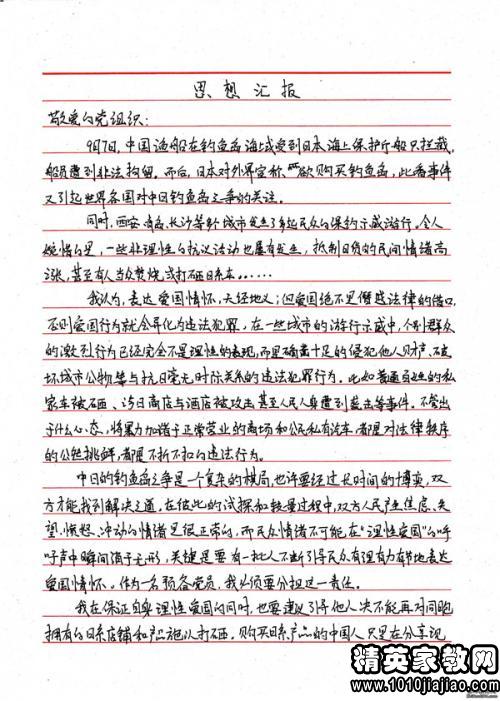 思想汇报
敬爱的党组织：
9月7日，中国渔船在钓鱼岛海域受到日本海上保厅船只拦截，
船员遭到非法拘留。而后，日本对外界宣称欲购买钓鱼岛，此番事件
又引起世界各国对中日钓鱼岛之争的关注。
同时，西安、青岛、长沙等城市发生了多起民众的保钓示威游行。令人
惋惜的是，一些非理性的抗议活动也屡有发生，抵制日货的民间情绪高
涨，甚至有人当众焚烧或打砸日系车……
我认为，表达爱国情怀，天经地义；但爱国绝不是僭越法律的借口，
否则爱国行为就会异化为违法犯罪。在一些城市的游行示威中，个别群众
的激烈行为已经完全不是理性的表现，而是确凿十足的侵犯他人财产、破
坏城市公物等与抗日毫无实际关系的违法犯罪行为。比如普通百姓的私
家车被砸、涉日商店与酒店被攻击甚至人民人身遭到袭击等事件。不管出
于什么心态，将暴力加诸于正常营业的商场和公民私有汽车，都是对法律秩序
的公然挑衅，都是不折不扣的违法行为。
中日的钓鱼岛之争是一个复杂的棋局，也许要经过长时间的博弈，双
方才能找到解决之道，在彼此的试探和较量过程中，双方人民产生焦虑、失
望、愤怒、冲动的情绪是很正常的，而民众情绪不可能在“理性爱国”的呼
吁声中瞬间消于无形，关键是要有一批人不断引导民众有理有力有节地表达
爱国情怀。作为一名预备党员，我必须要分担这一责任。
我在保证自身理性爱国的同时，也要建议引导他人决不能再对同胞
拥有的日系店铺和产品施以打砸。购买日系产品的中国人只是在分享现
精英家教网
www.1010jiajiao.com